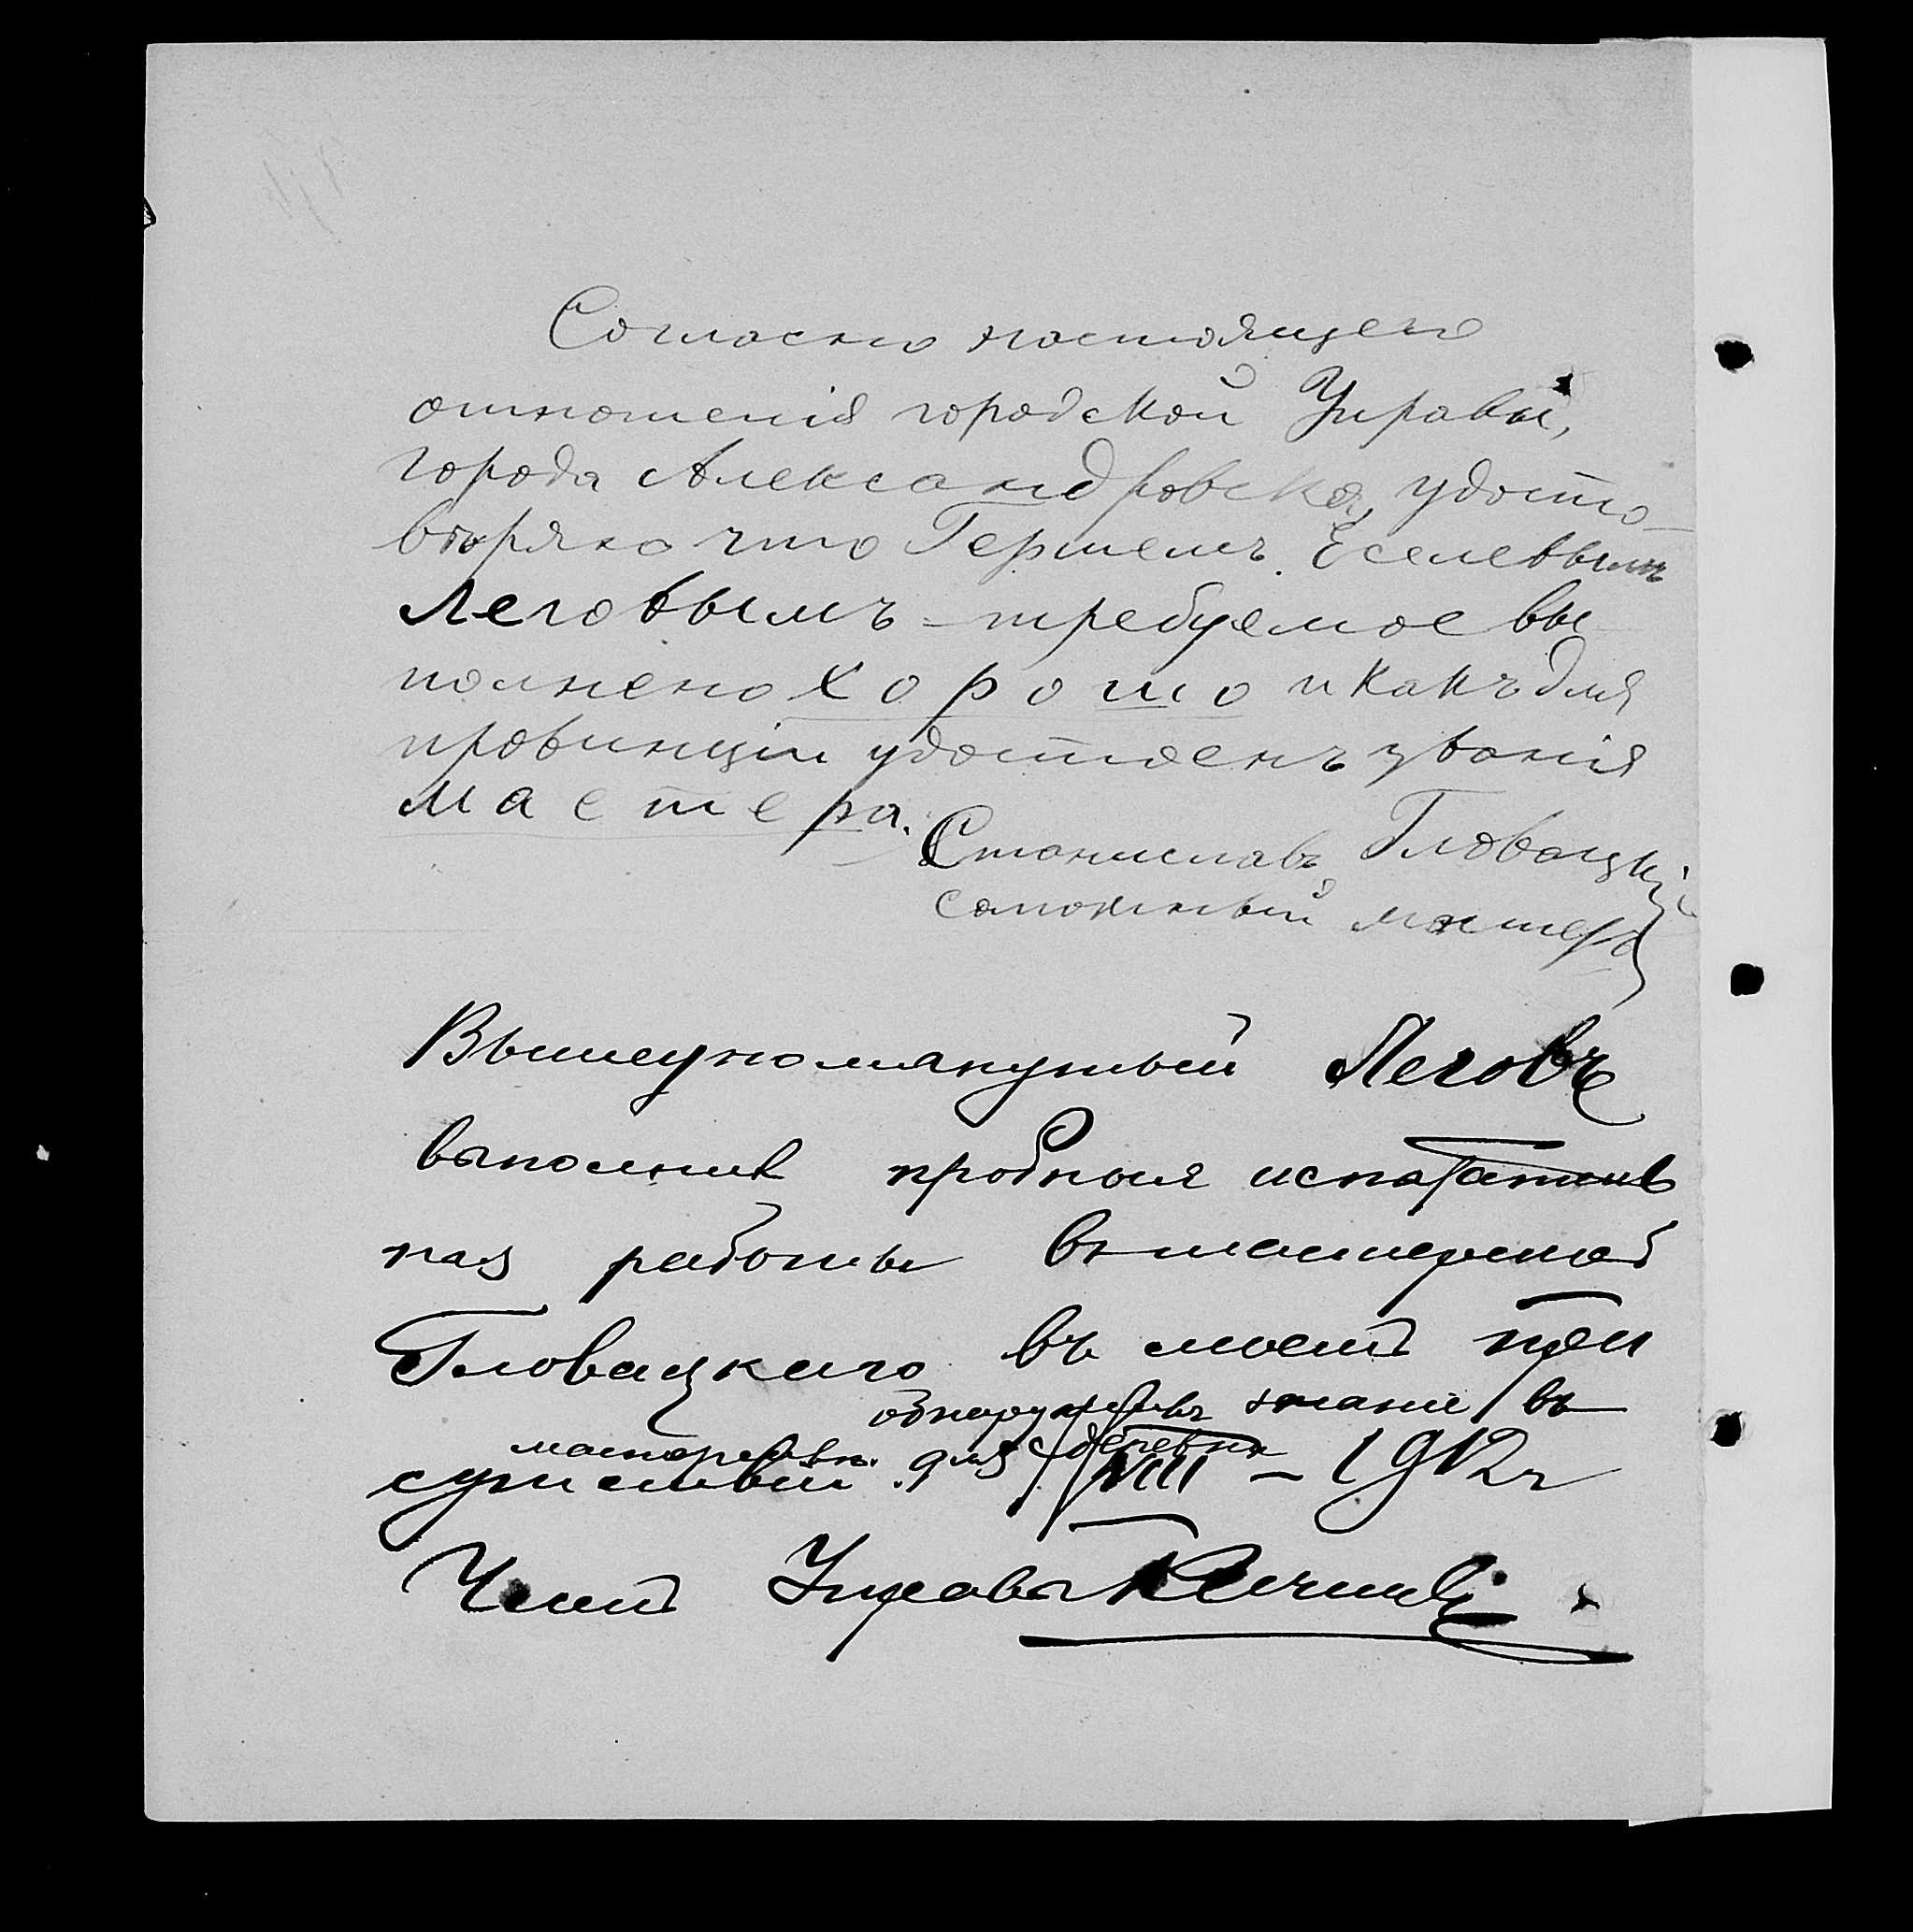 Согласно настоящего
отношенія городской Управы,
города Александровска, удосто-
веряю что Гершемъ Еселевымъ
Леговымъ - требуемое вы
полнено хорошо и какъ для
провинціи удостоенъ званія
мастера.
Станиславъ Гловацкій
сапожный мастеръ
Вышеупомянутый Леговъ
выполнив пробныя
работы в мастерской
Гловацкаго въ моемъ при
обнаружилъ знаніе въ
мастерствѣ для деревни
сутствіи VIII - 1912 г
Членъ Управы